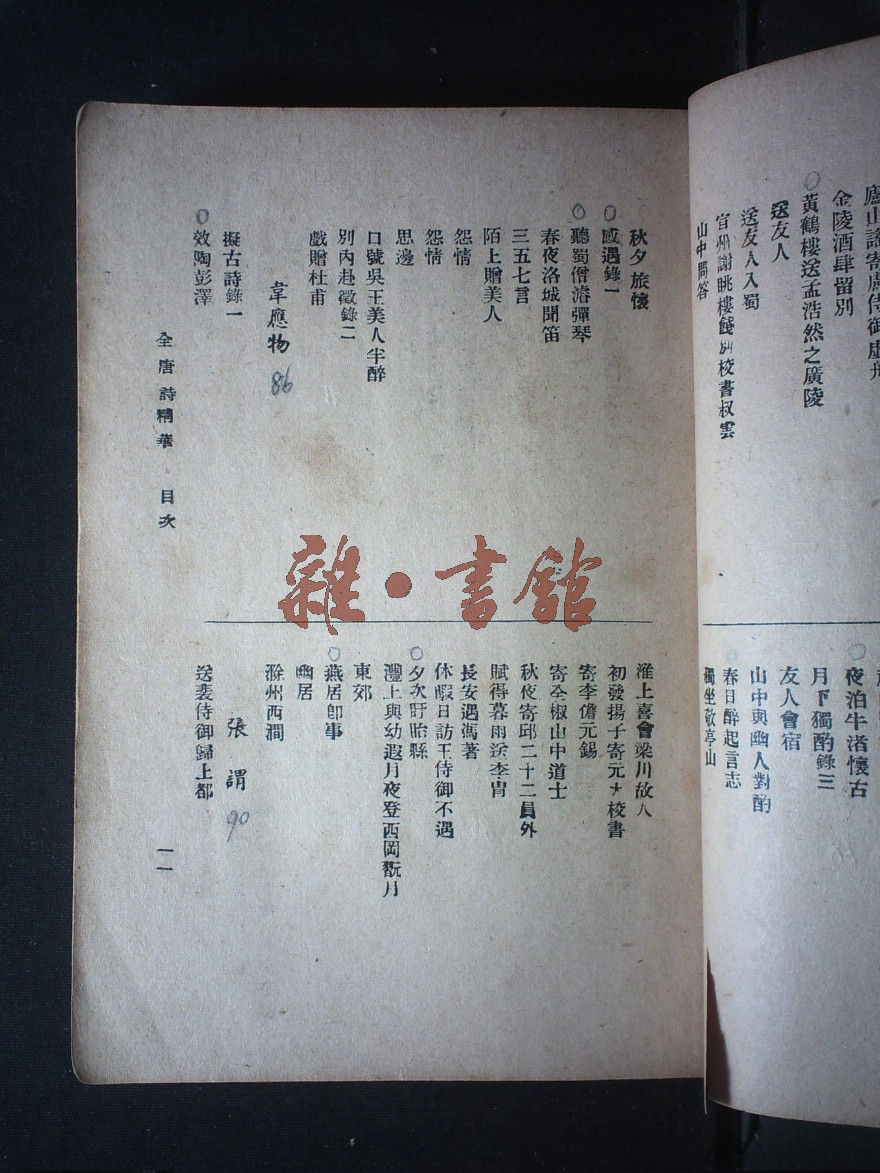 金陵酒肆留別
黃鶴樓送孟浩然之廣陵
送友人
送友人入蜀
宣州謝眺樓餞別校書叔雲
山中問答
夜泊牛渚懷古
月下獨酌錄三
友人會宿
山中與幽人對酌
春日醉起言志
獨坐敬亭山
秋夕旅懷
感遇錄一
聽蜀僧濬彈琴
春夜洛城聞笛
三五七言
陌上贈美人
怨情
怨情
思邊
口號吳王美人半醉
別內赴徵錄二
戲贈杜甫
韋應物 86
擬古詩錄一
效陶彭澤
淮上喜會梁川故人
初發揚子寄元大校書
寄李儋元錫
寄全椒山中道士
秋夜寄邱二十二員外
賦得暮雨送李冑
長安遇馮著
休暇日訪王侍御不遇
夕次盱眙縣
灃上與幼遐月夜登西岡翫月
東郊
燕居卽事
幽居
滁州西澗
張謂 90
送裴侍御歸上都
全唐詩精華 目次
一一
雜·書館